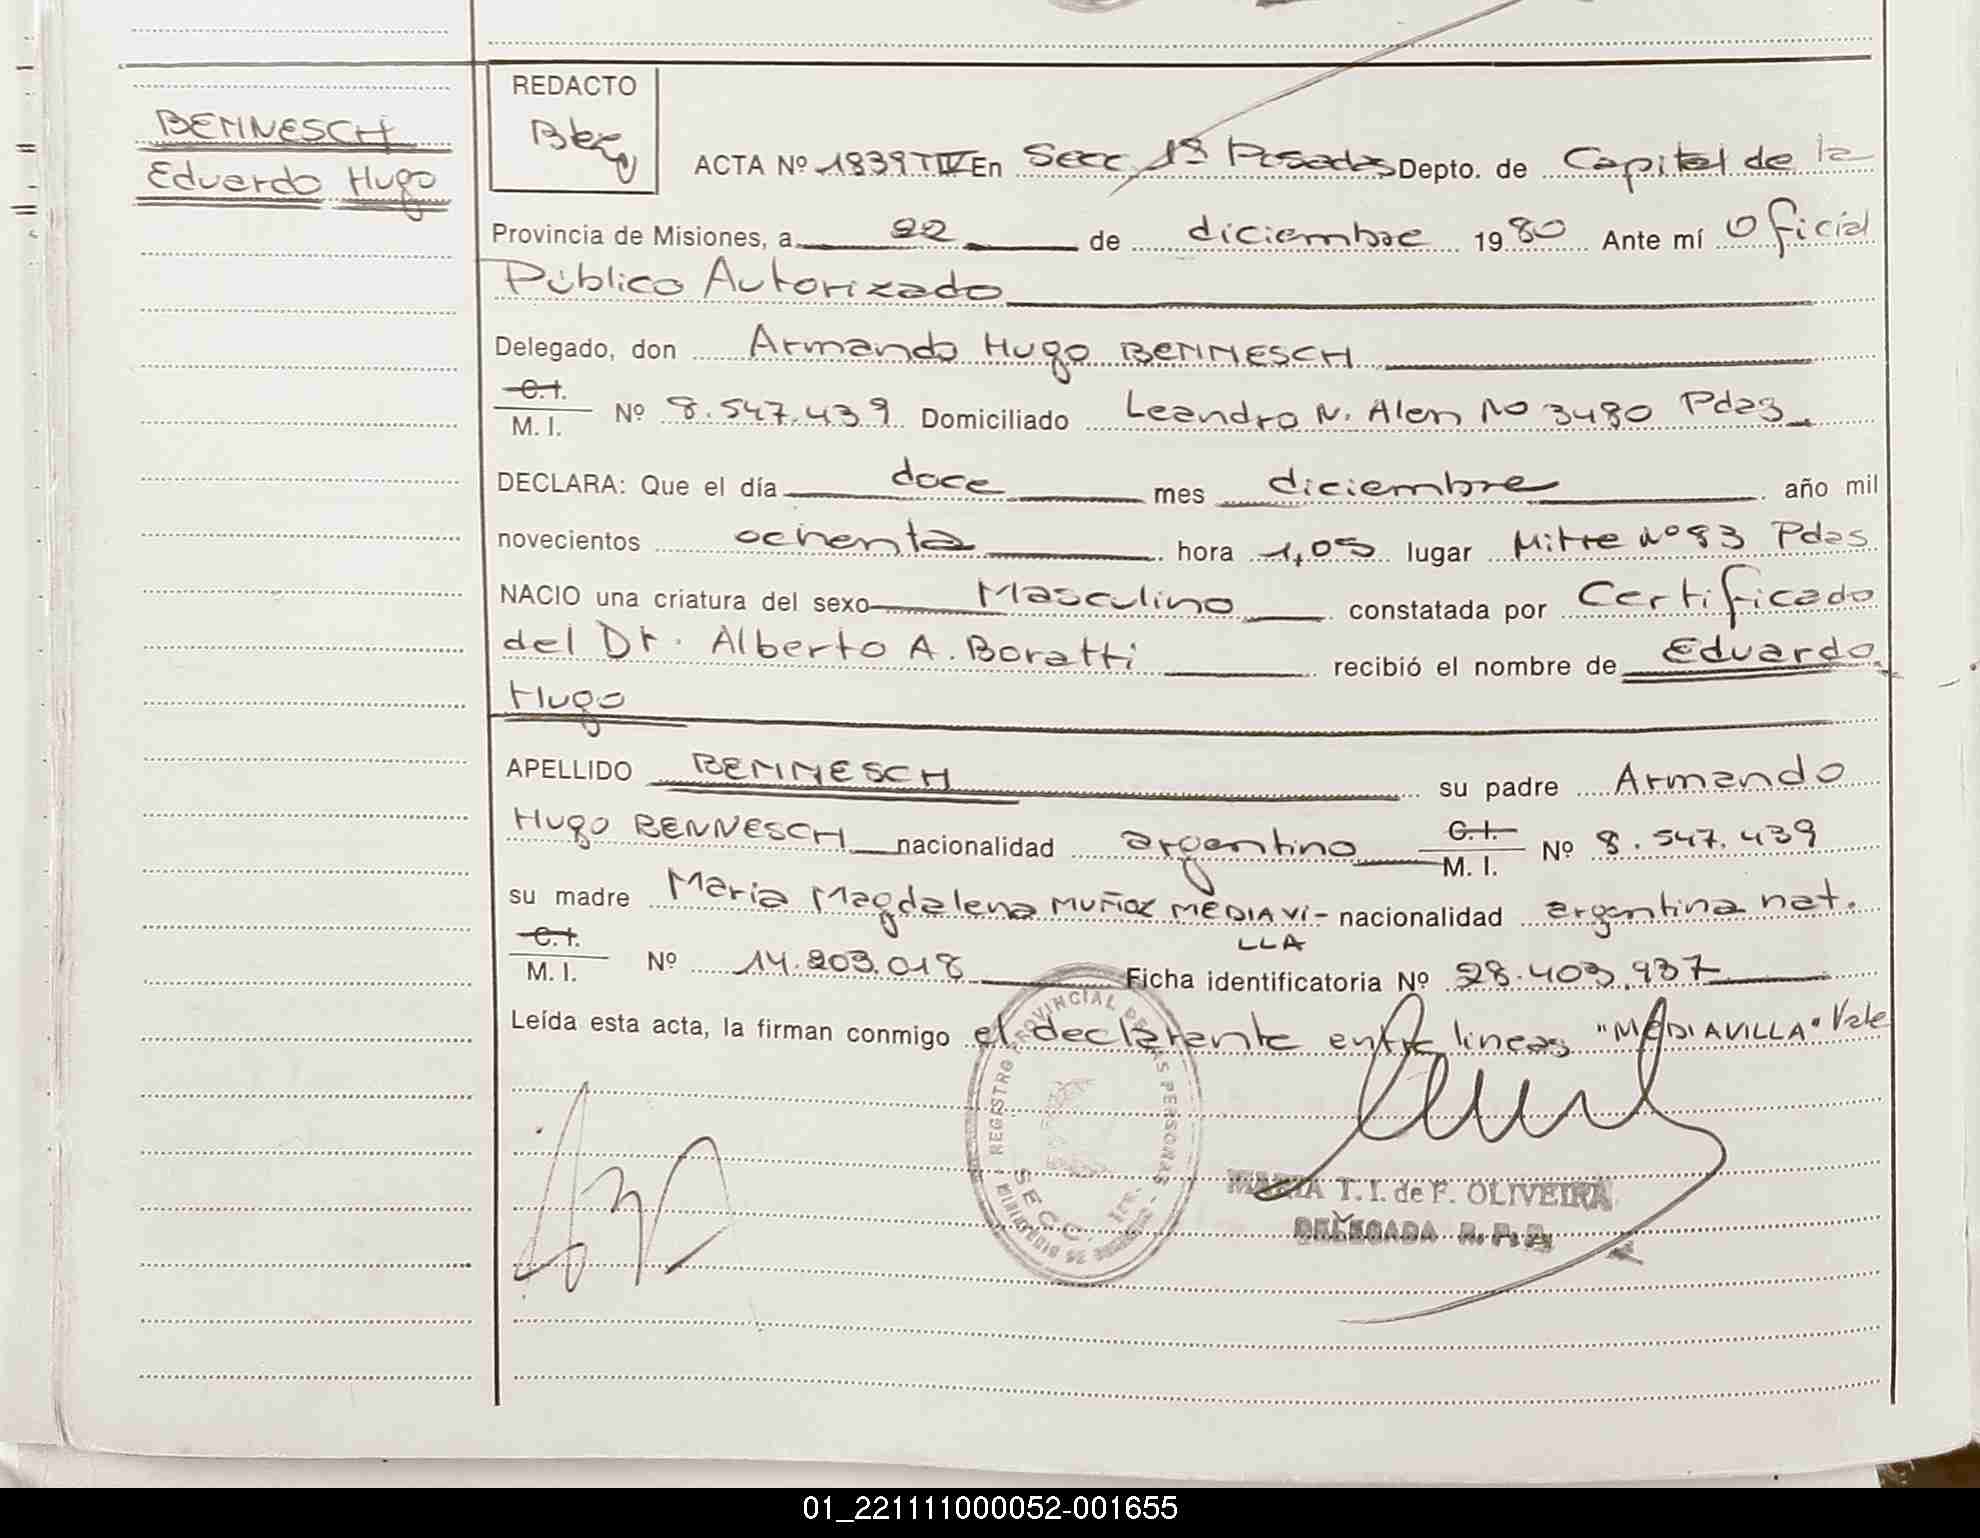 BENNESCH
Eduardo Hugo
REDACTO
ACTA Nº 1839 TIV En Secc. 1ª Posadas Depto. de Capital de la
Provincia de Misiones, a 22 de diciembre 1980 Ante mí Oficial
Público Autorizado
Delegado, don Armando Hugo BENNESCH
C.I.
M. I. Nº 8.547.439 Domiciliado Leandro N. Alen No 3480 Pdas
DECLARA: Que el día doce mes diciembre año mil
novecientos ochenta hora 1,05 lugar Mitre Nº 83 Pdas
NACIO una criatura del sexo Masculino constatada por Certificado
del Dr. Alberto A. Boratti recibió el nombre de Eduardo
Hugo
APELLIDO BENNESCH su padre Armando
Hugo BENNESCH nacionalidad argentino C.I. M. I. Nº 8.547.439
su madre Maria Magdalena MUÑOZ MEDIAVI- nacionalidad argentina nat.
LLA
C.I.
M. I. Nº 14.203.018 Ficha identificatoria Nº 28.403.937
Leída esta acta, la firman conmigo el declarante entre lineas "MEDIAVILLA" Vale
REGISTRO PROVINCIAL DE LAS PERSONAS
SECC. 1ra.
MARIA T. I. de F. OLIVEIRA
DELEGADA R. P. P.
01_221111000052-001655